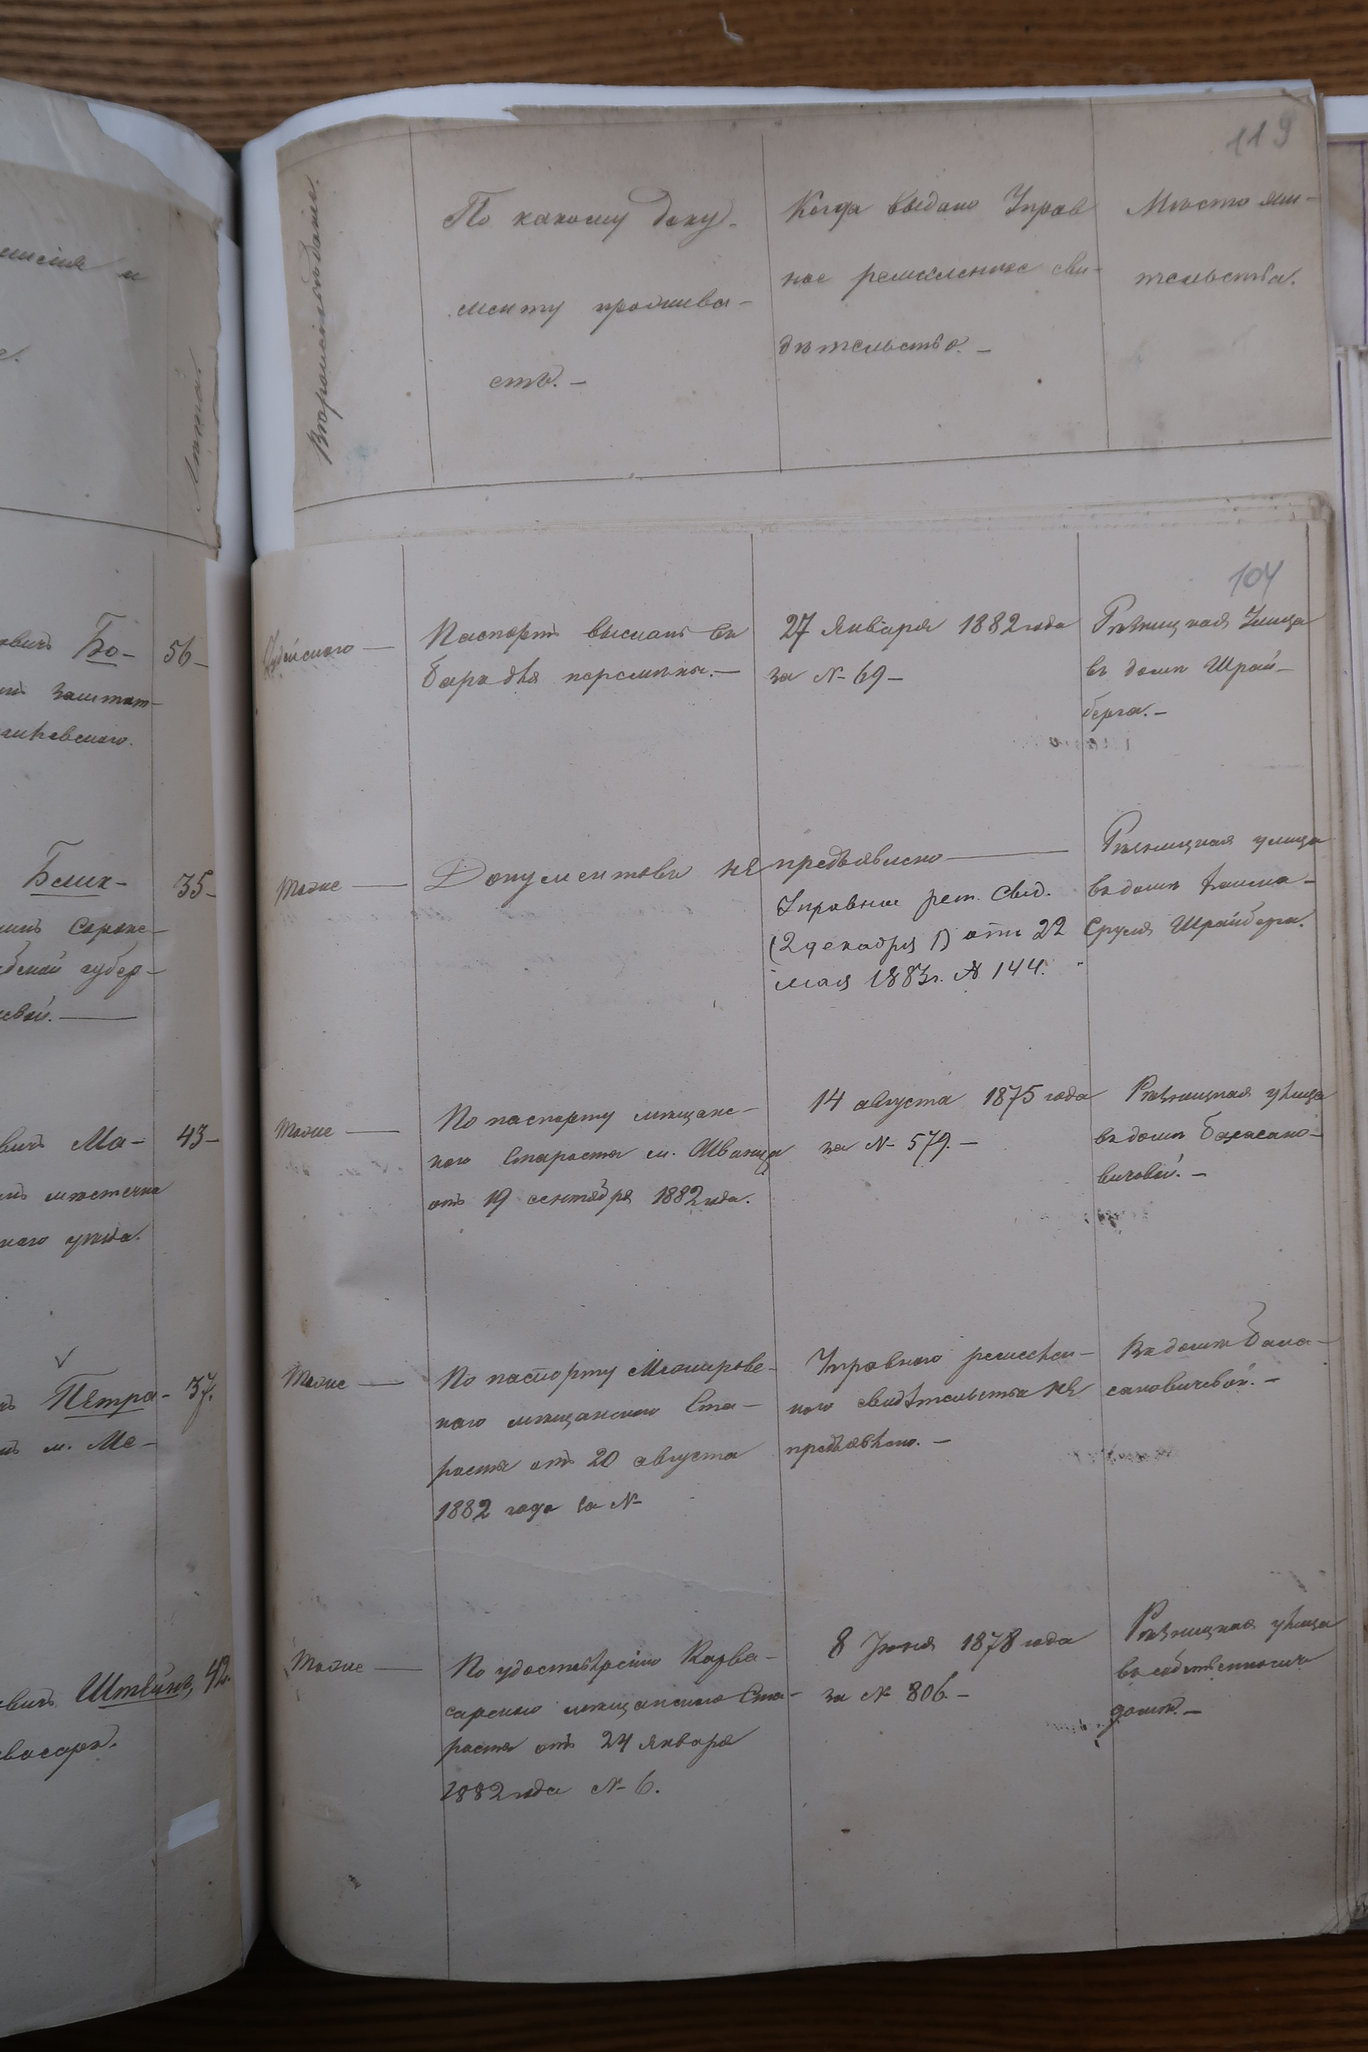 119
Вѣроисповѣданіе.
По какому доку-
менту прожива-
етъ. –
Когда выдано Управ
ное ремесленное сви-
дѣтельство. –
Мѣсто жи-
тельства.
Лѣта.
104
Бо- 56 –
Іудейскаго —
Паспортъ высланъ въ
для перемѣны. —
27 Января 1882 года
за № 69 –
Рѣзницкая Улица
въ домѣ Шрай-
берга. –
35 –
губер-
Тоже —
Документовъ не предъявлено —
Управное рем. свид.
(2 декабря ) отъ 22
мая 1883 г. № 144.
Рѣзницкая улица
въ домѣ
Сруля Шрайберга.
Ма- 43 –
мѣстечка
наго уѣзда.
Тоже —
По паспорту мѣщанс-
каго Старосты м. Жванца
отъ 19 сентября 1882 года.
14 августа 1875 года
за № 579. –
Рѣзницкая улица
въ домѣ Баласано-
вичевой. –
Петра- 37.
м. Ме-
Тоже —
По паспорту Межирове-
каго мѣщанскаго Ста-
росты отъ 20 августа
1882 года за №
Управнаго ремеслен-
наго свидѣтельства не
предъявлено. –
Въ домѣ Бала-
сановичевой. –
Штейнъ, 42.
Тоже —
По удостовѣренію Карва-
сарскаго мѣщанскаго Ста-
росты отъ 24 января
1882 года № 6.
8 Іюня 1878 года
за № 806. –
Рѣзницкая улица
въ собственномъ
домѣ. –